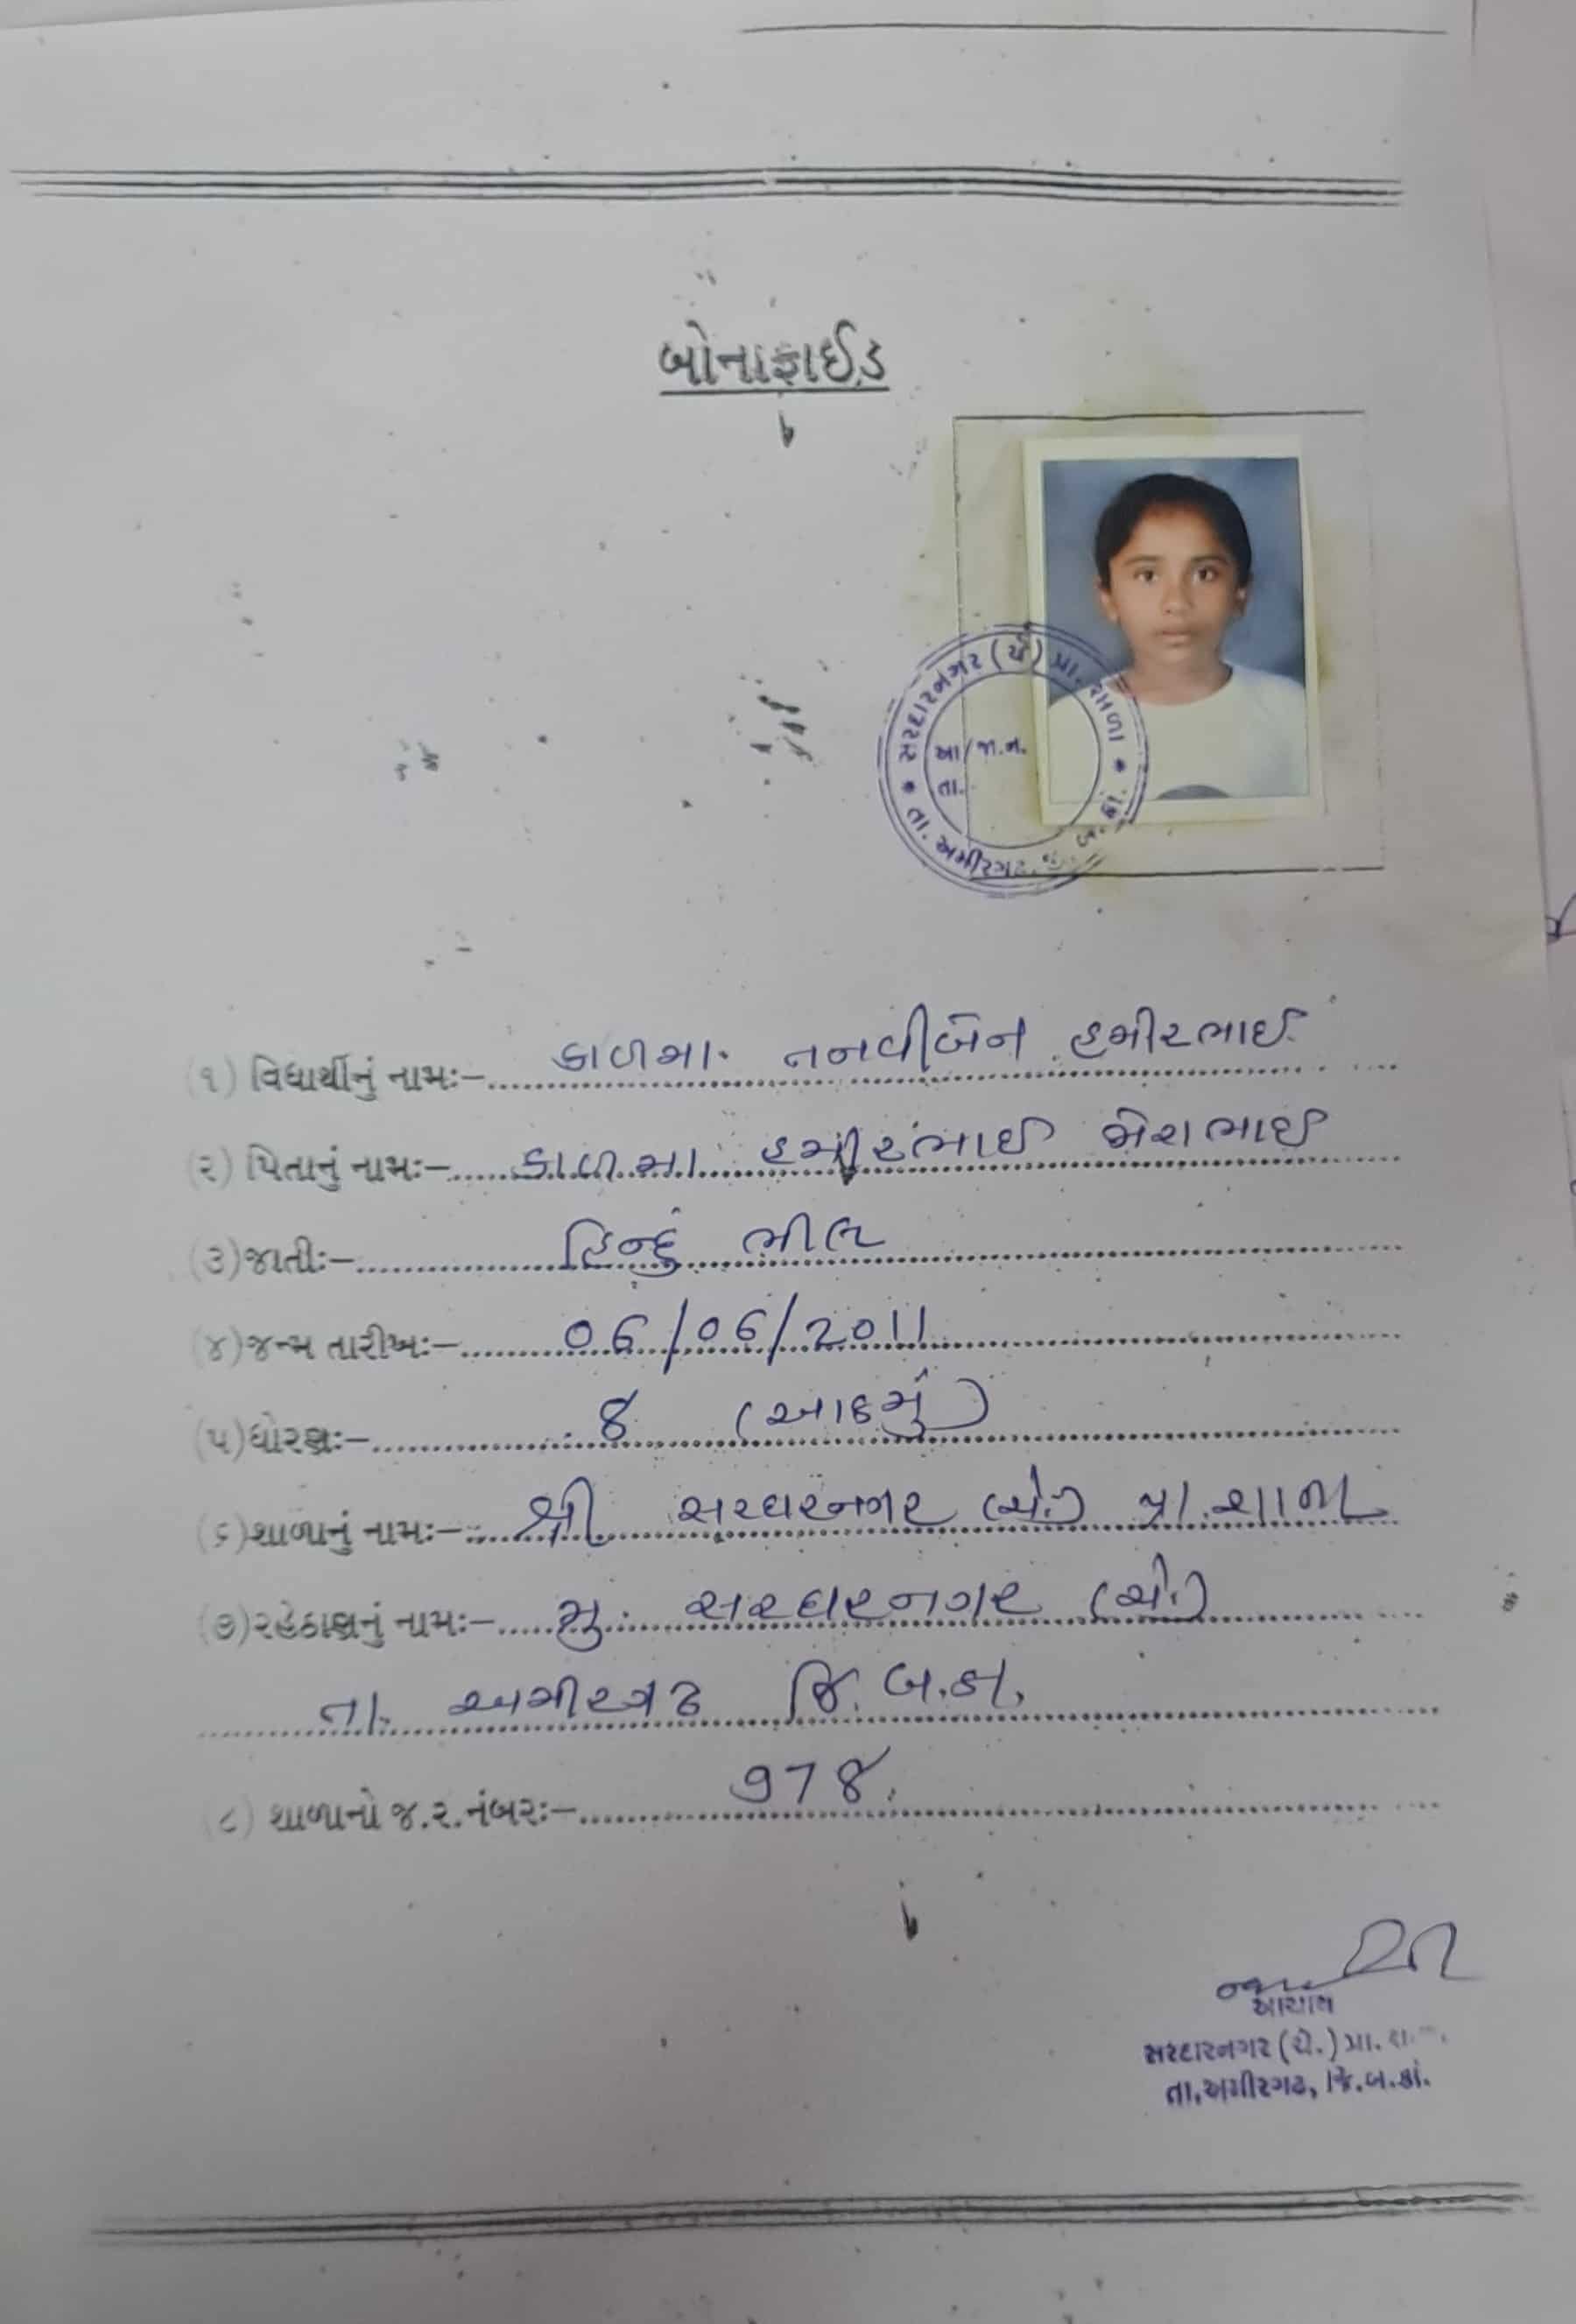 બોનાફાઈડ
સરદારનગર (ચે) પ્રા. શાળા
આ/જા.ન.
તા.
તા. અમીરગઢ. જી. બ. કાં.
(૧) વિધાર્થીનું નામઃ- કાળમા. તનવીબેન હમીરભાઈ
(૨) પિતાનું નામઃ- કાળમા હમીરભાઈ મેરાભાઈ
(૩)જાતીઃ- હિન્દુ ભીલ
(૪)જન્મ તારીખઃ- 06/06/2011
(૫)ધોરણઃ- ૪ (આઠમું)
(૬)શાળાનું નામઃ- શ્રી સરદારનગર (ચે.) પ્રા. શાળા
(૭)રહેઠાણનું નામઃ- મુ. સરદારનગર (ચે.)
તા. અમીરગઢ જિ. બ.કા.
(૮) શાળાનો જ.ર.નંબરઃ- 978.
આચાર્ય
સરદારનગર (ચે.) પ્રા. શા.
તા.અમીરગઢ, જિ.બ.કાં.